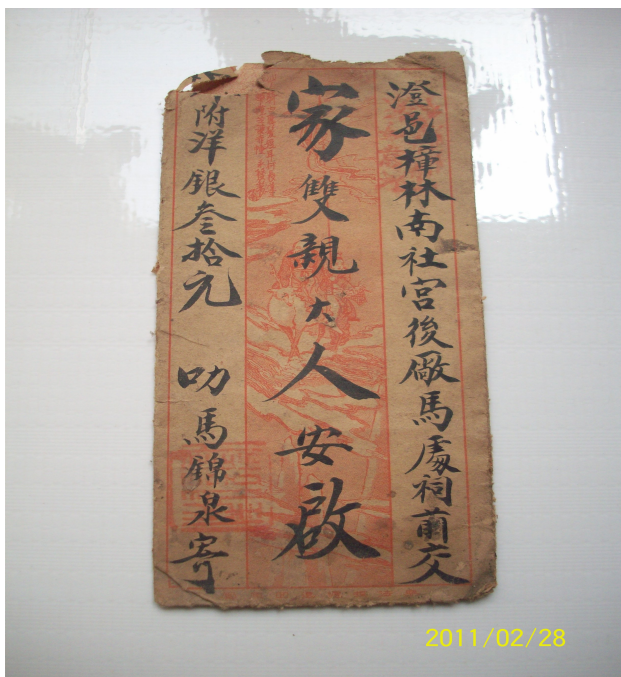 澄邑樟林南社宮後廠馬處祠前交
家雙親大人安啟
附洋銀叁拾元 叻馬錦泉寄
2011/02/28